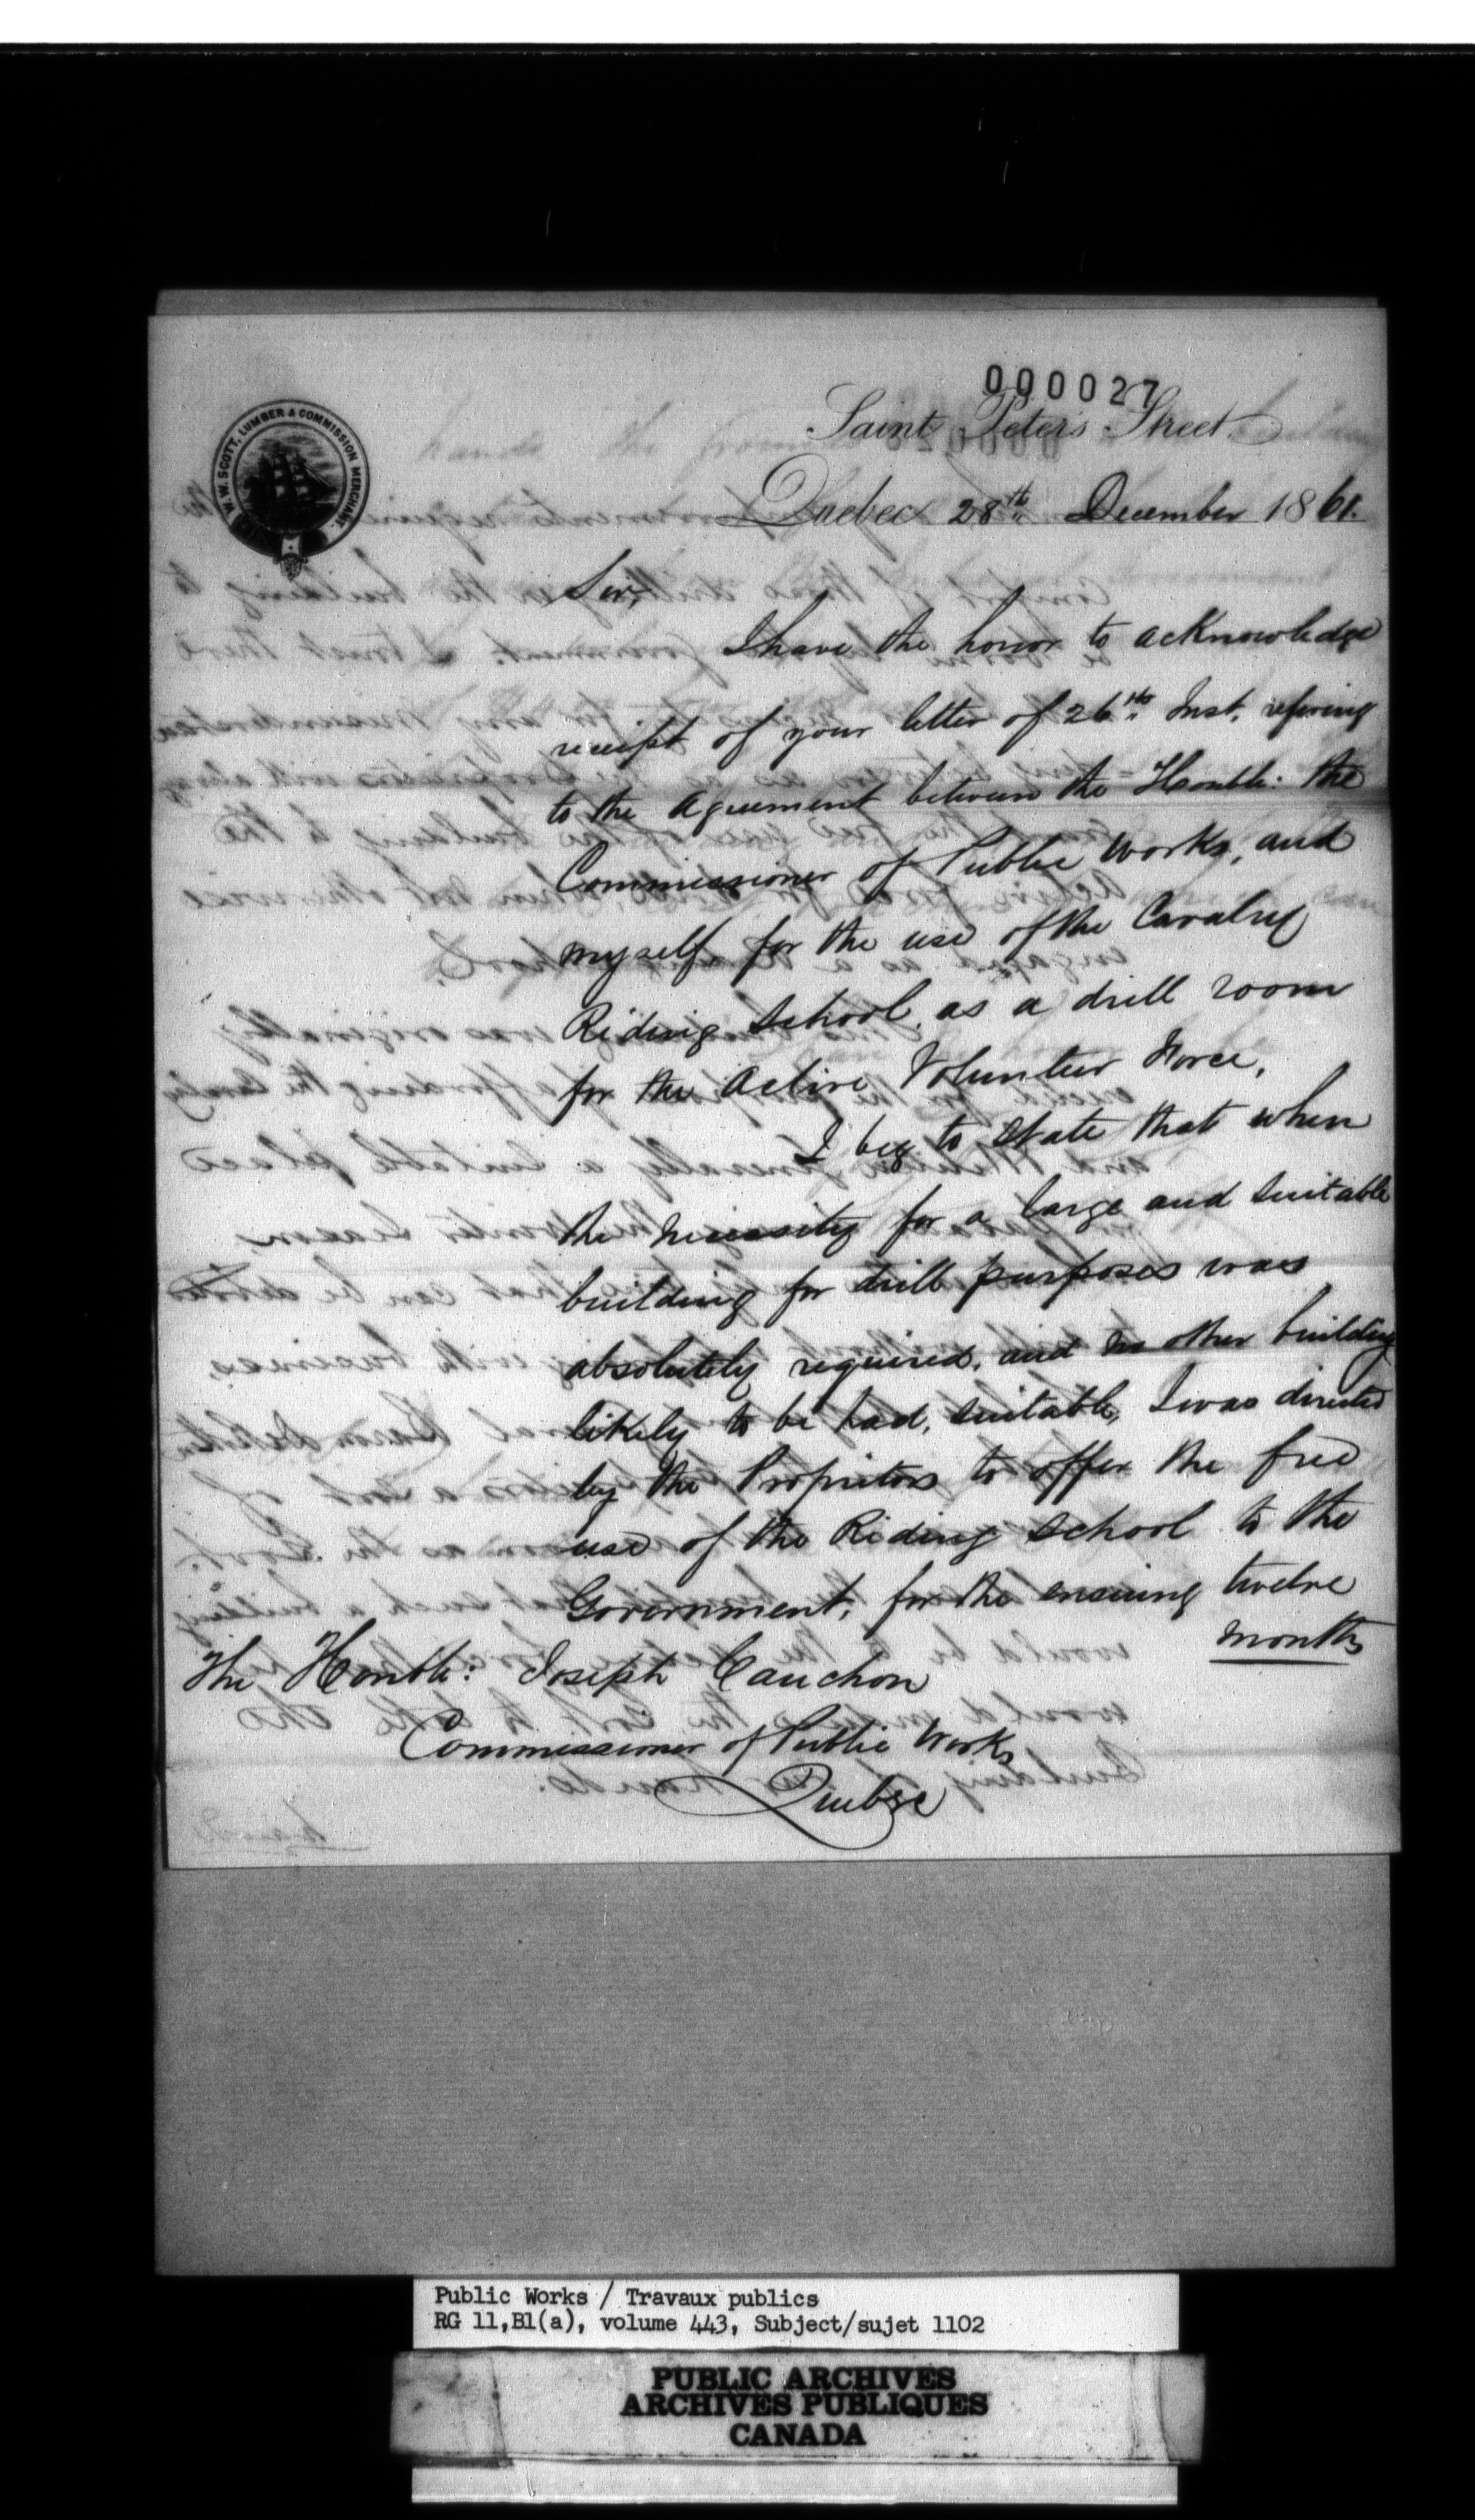 000027
W. W. SCOTT, LUMBER & COMMISSION MERCHANT.
Saint Peter's Street.
Quebec 28th December 1861.
Sir,
I have the honor to acknowledge
receipt of your letter of 26th Inst. refering
to the Agreement between the Honble: the
Commissioner of Public Works, and
myself, for the use of the Cavalry
Riding School, as a drill room
for the Active Volunteer Force,
I beg to state that when
the necessity for a large and suitable
building for drill purposes was
absolutely required, and no other building
likely to be had, suitable, I was directed
by the Proprietors to offer the free
use of the Riding School to the
Government, for the ensuing twelve
months
The Honble: Joseph Cauchon
Commissioner of Public Works
Quebec
Public Works / Travaux publics
RG 11,B1(a), volume 443, Subject/sujet 1102
PUBLIC ARCHIVES
ARCHIVES PUBLIQUES
CANADA